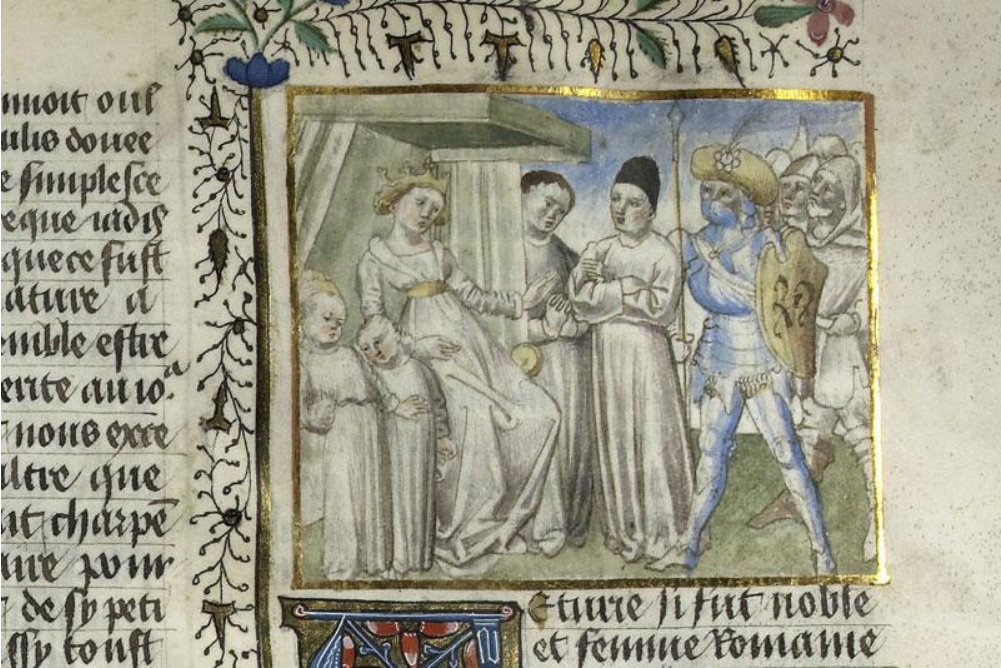 oul
douee
e simplesce
eque iadis
que ce fust
ature a
emble estre
erite au io.a
nous exce
ultre que
nt charpe
aire pour
de sy peti
ssy toust
Eturie si fut noble
et femme Romaine